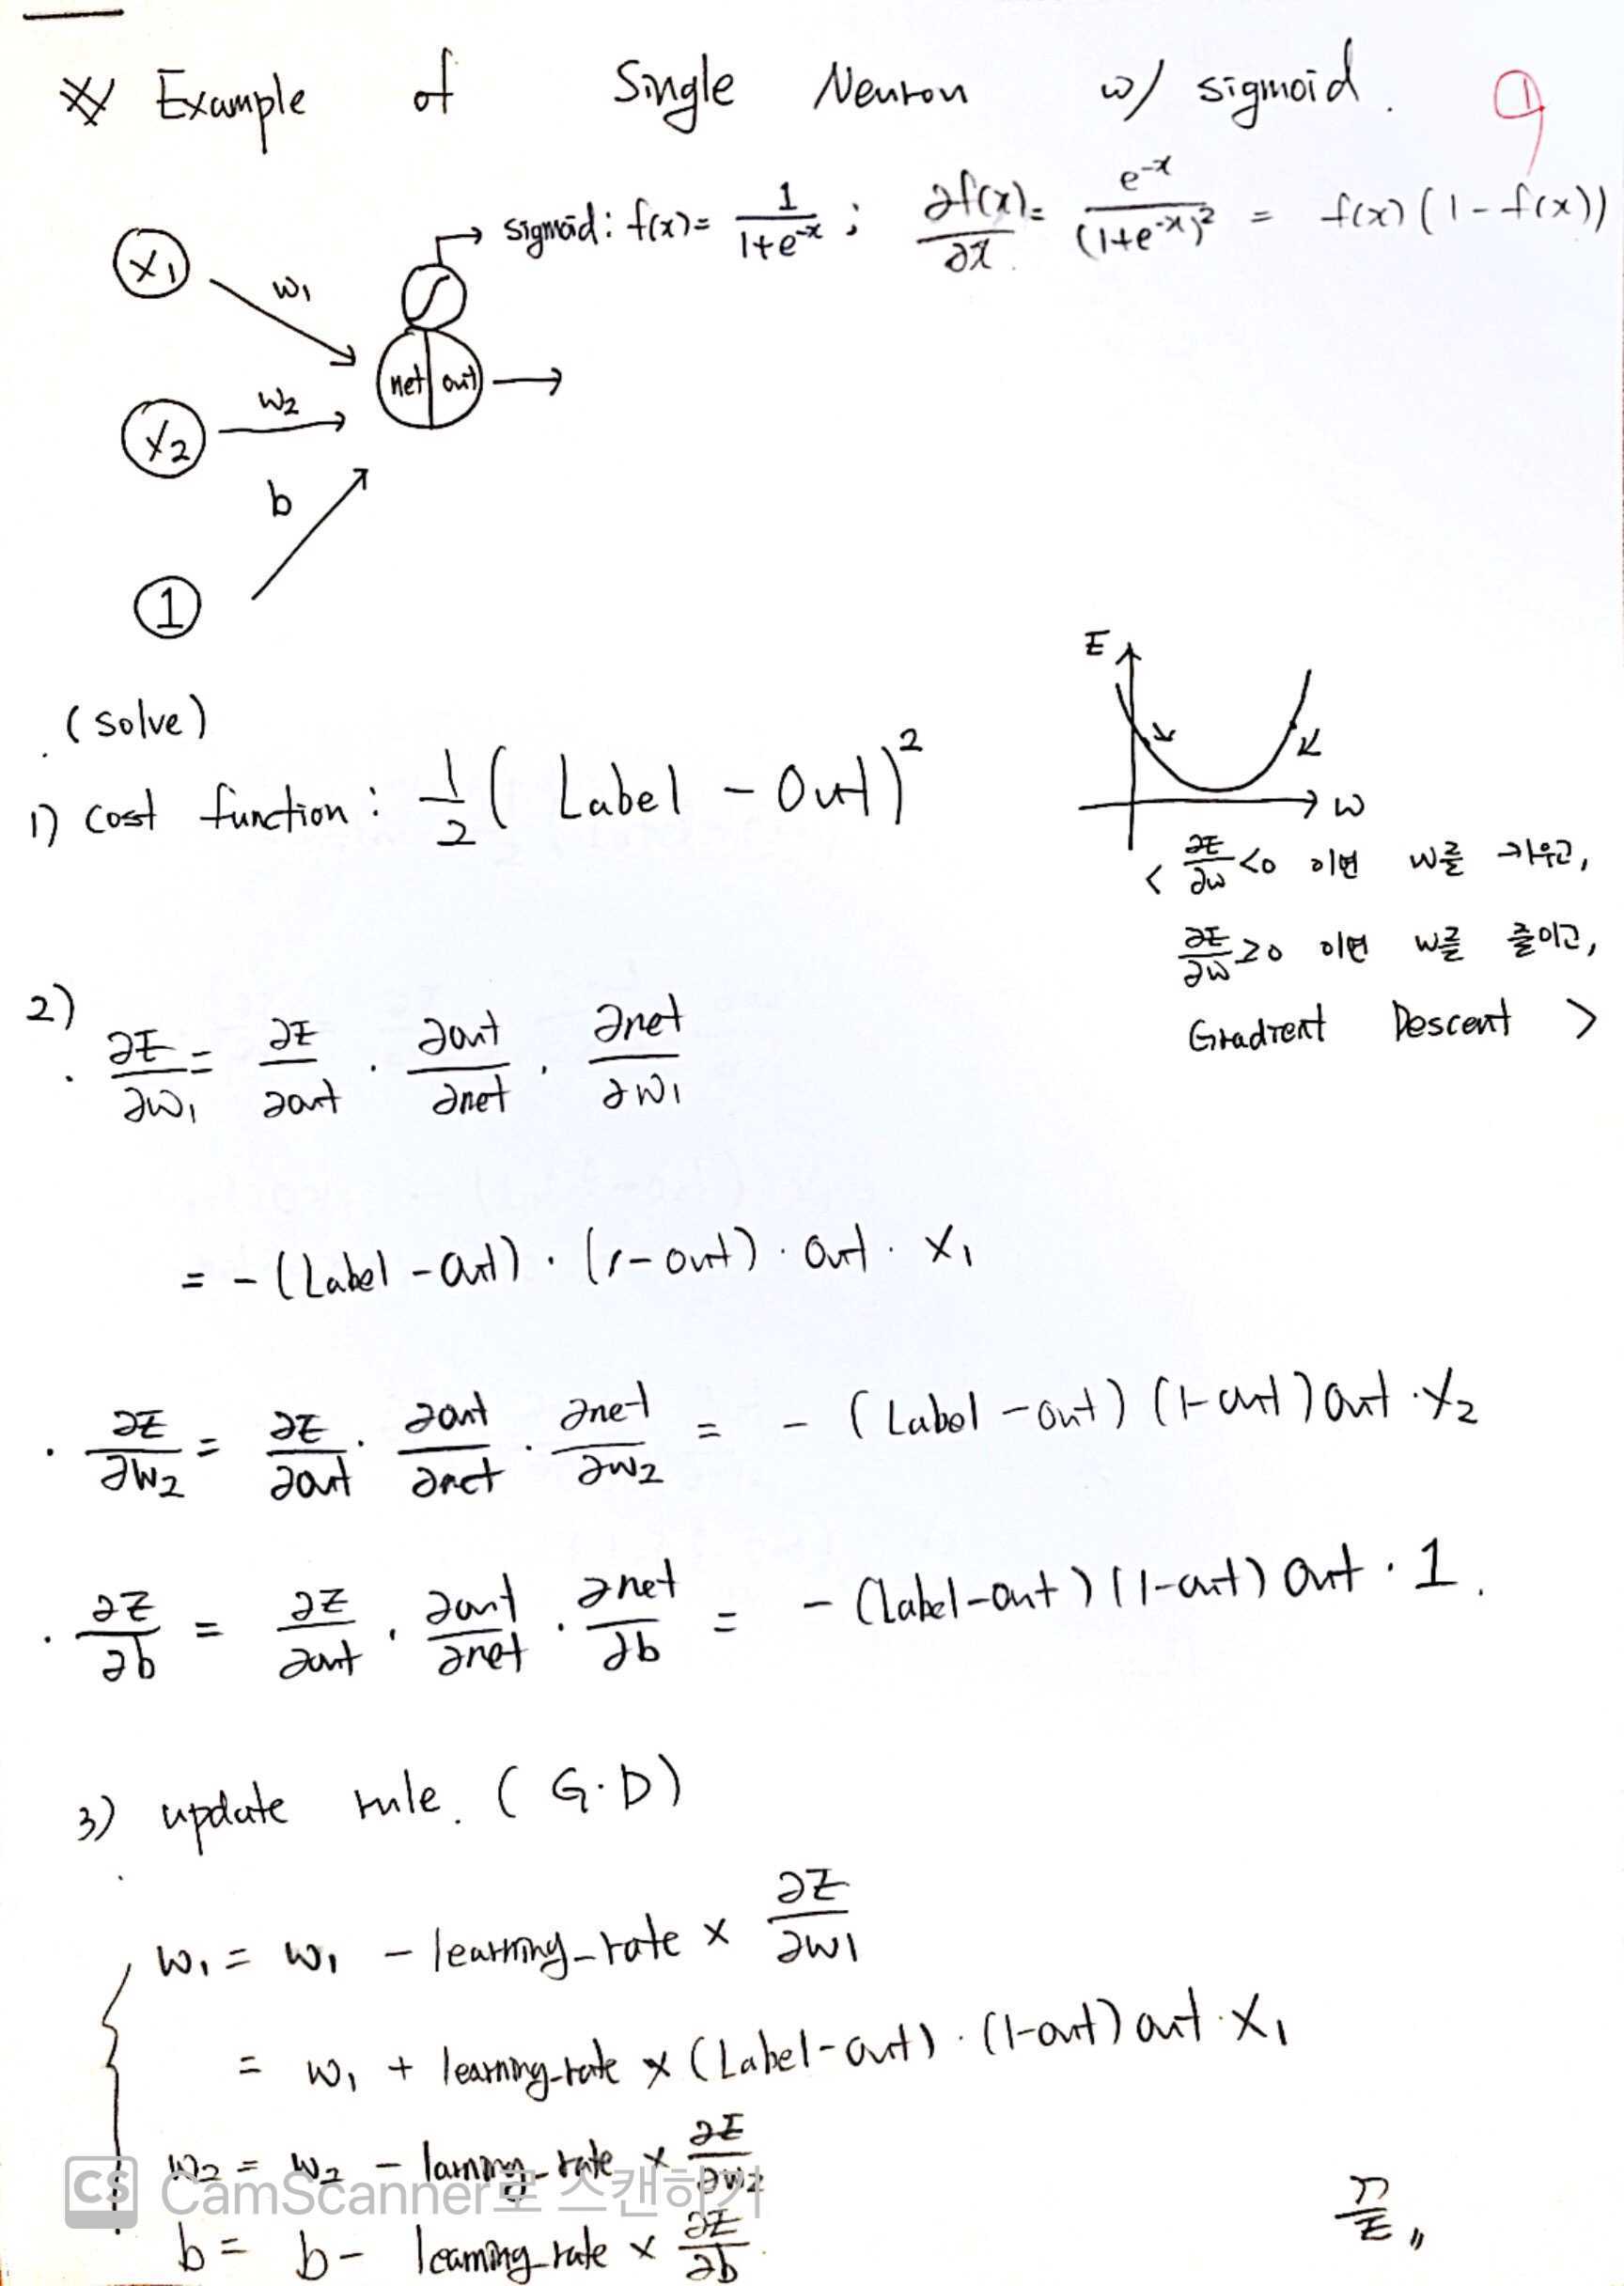 ※ Example of Single Neuron w/ sigmoid.
9
sigmoid: f(x)= 1/(1+e^-x) ; ∂f(x)/∂x = e^-x/(1+e^-x)² = f(x)(1-f(x))
X₁ w₁
net out
X₂ w₂
b
1
E
w
(solve)
1) cost function: 1/2 ( Label - Out )²
< ∂E/∂w <0 이면 w를 키우고,
∂E/∂w ≥0 이면 w를 줄이고,
Gradient Descent >
2)
· ∂E/∂w₁ = ∂E/∂out · ∂out/∂net · ∂net/∂w₁
= - (Label - out) · (1-out) · out · X₁
· ∂E/∂w₂ = ∂E/∂out · ∂out/∂net · ∂net/∂w₂ = - (Label - out) (1-out) out · X₂
· ∂E/∂b = ∂E/∂out · ∂out/∂net · ∂net/∂b = - (Label-out) (1-out) out · 1.
3) update rule. ( G.D)
w₁ = w₁ - learning_rate × ∂E/∂w1
= w₁ + learning_rate × (Label-out) · (1-out) out · X₁
w₂ = w₂ - larning_rate × ∂E/∂w₂
b = b - learning_rate × ∂E/∂b
끝〃
CS CamScanner로 스캔하기